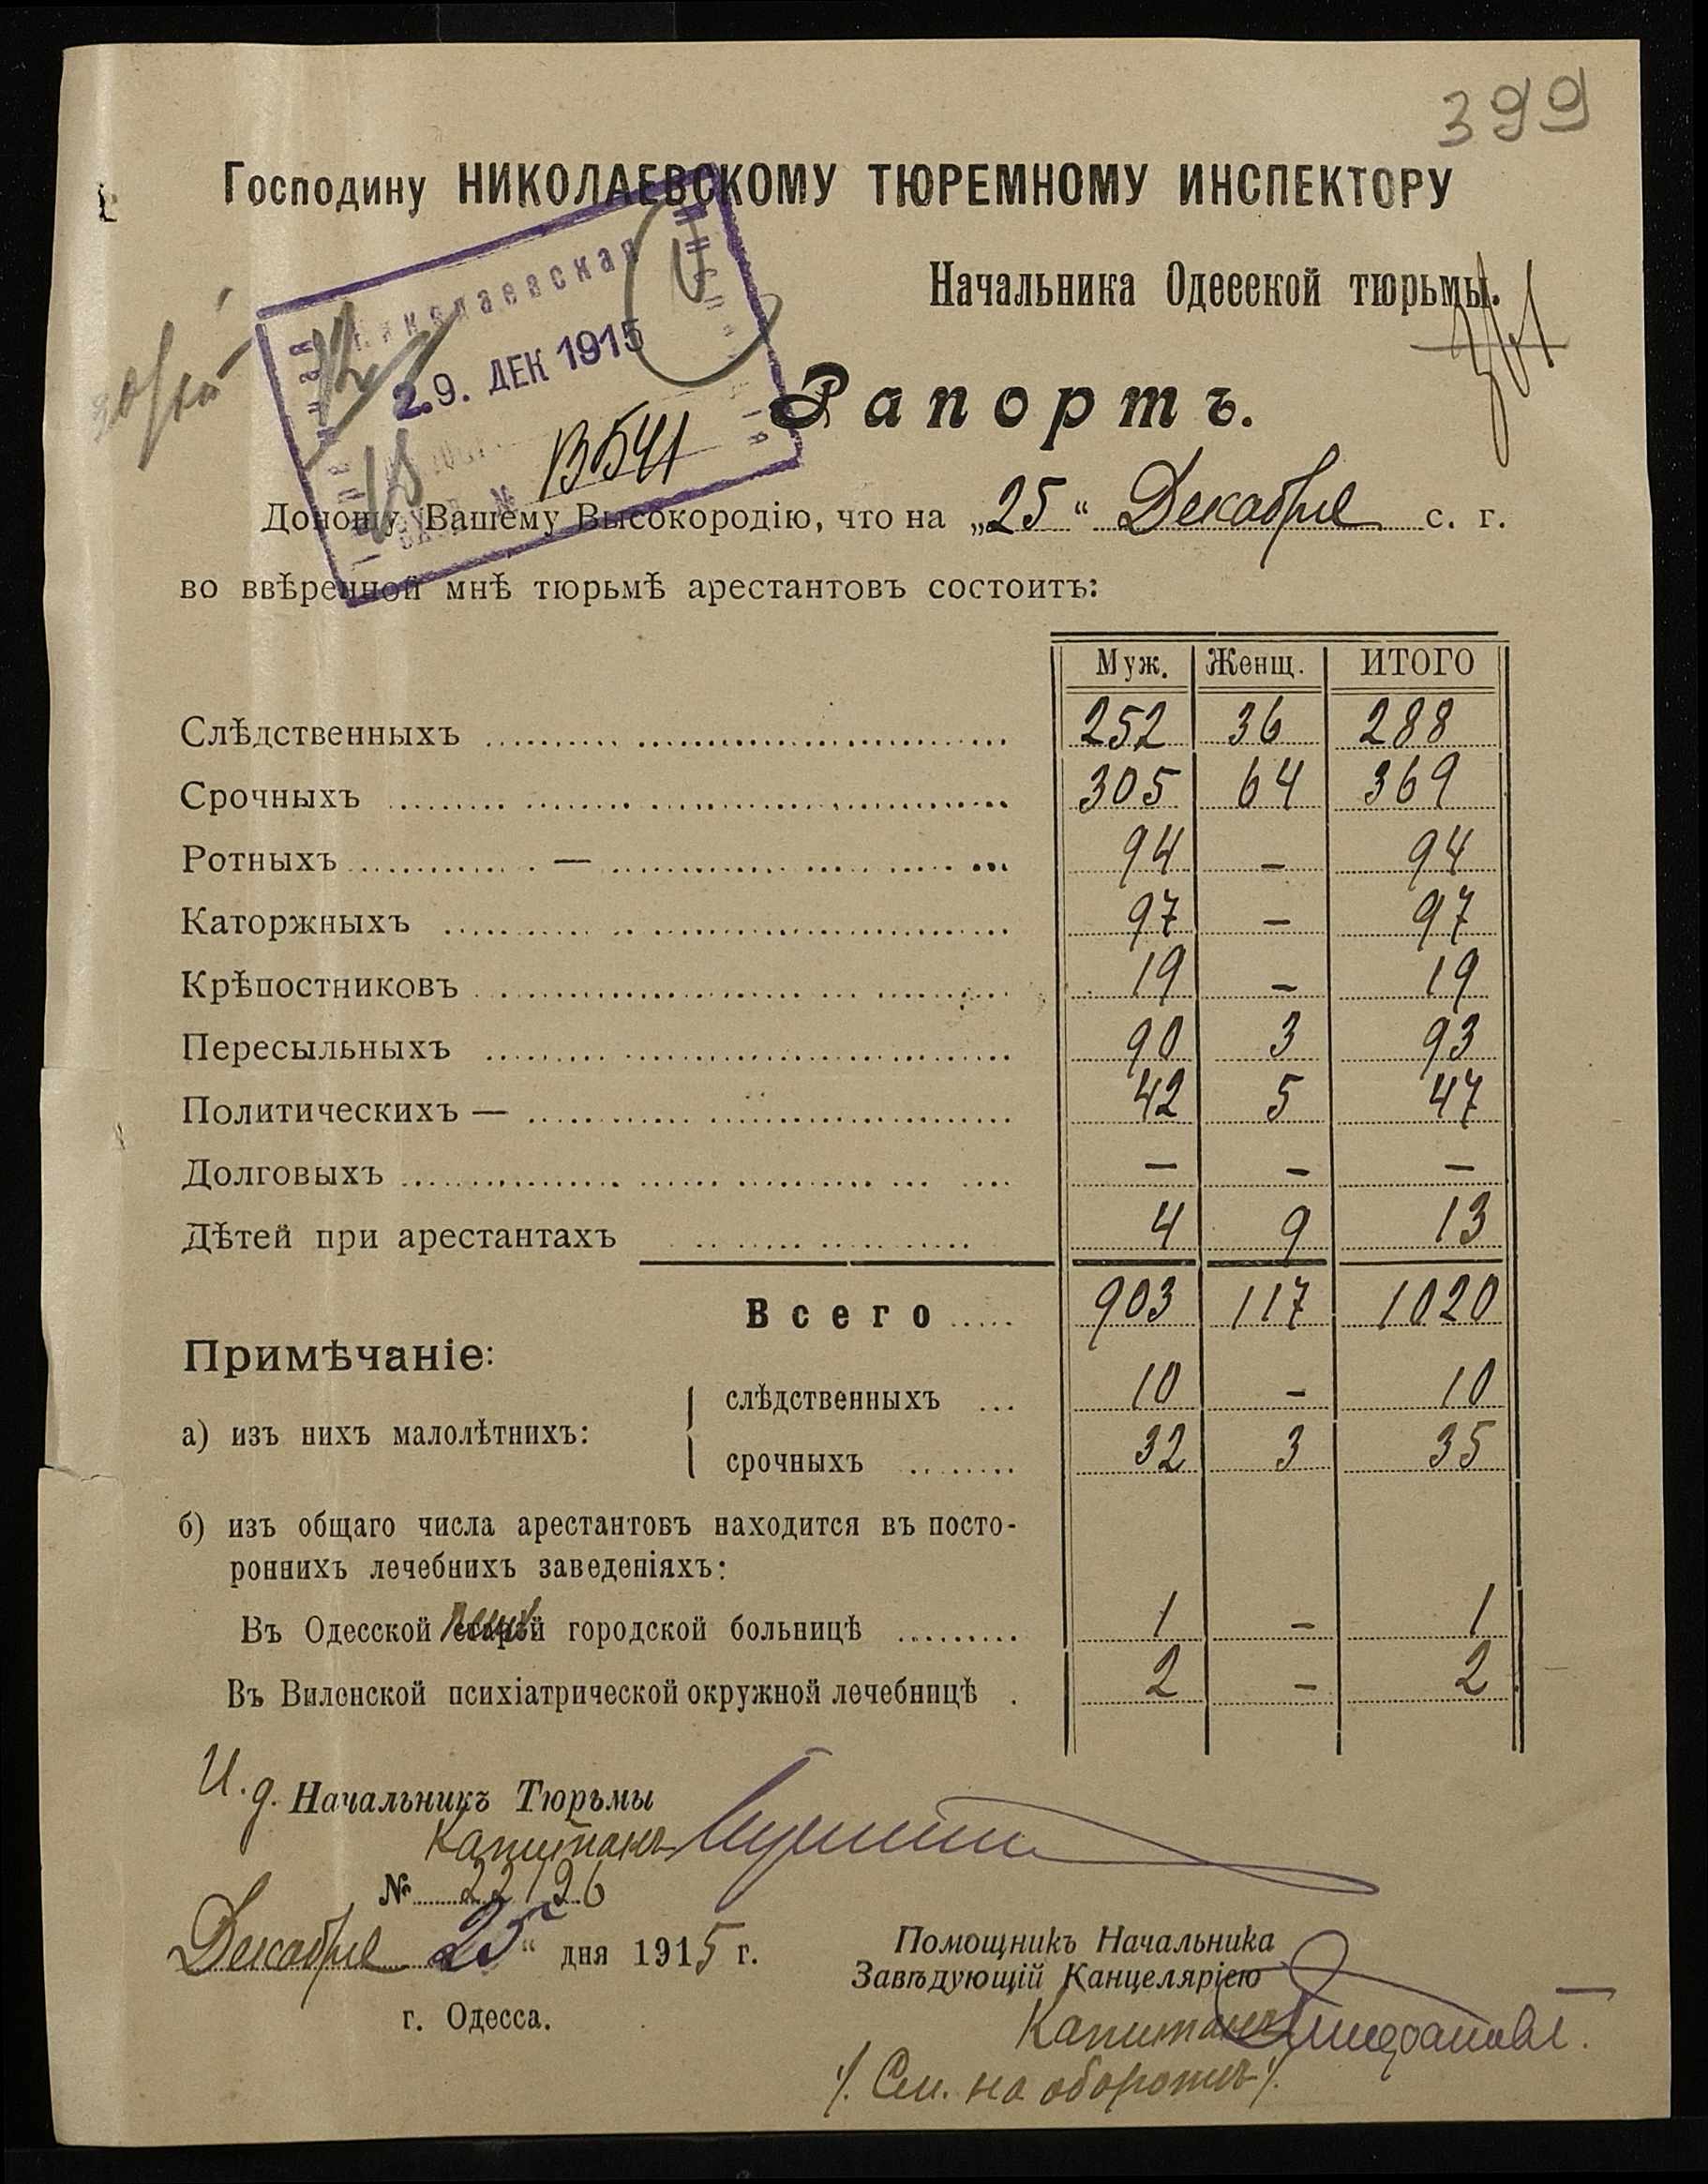 399
Господину НИКОЛАЕВСКОМУ ТЮРЕМНОМУ ИНСПЕКТОРУ
Начальника Одесской тюрьмы.
Николаевская
29. ДЕК 1915
№ 13541
Рапортъ.
Доношу Вашему Высокородію, что на „25“ Декабря с. г.
во ввѣренной мнѣ тюрьмѣ арестантовъ состоитъ:
Муж. Женщ. ИТОГО
Слѣдственныхъ 252 36 288
Срочныхъ 305 64 369
Ротныхъ — 94 — 94
Каторжныхъ 97 — 97
Крѣпостниковъ 19 — 19
Пересыльныхъ 90 3 93
Политическихъ — 42 5 47
Долговыхъ — — —
Дѣтей при арестантахъ 4 9 13
Всего 903 117 1020
Примѣчаніе:
а) изъ нихъ малолѣтнихъ: слѣдственныхъ 10 — 10
срочныхъ 32 3 35
б) изъ общаго числа арестантовъ находится въ посто-
роннихъ лечебнихъ заведеніяхъ:
Въ Одесской старой городской больницѣ 1 — 1
Въ Виленской психіатрической окружной лечебницѣ 2 — 2
И. д. Начальникъ Тюрьмы
Капитанъ
№ 22126
Декабря 25“ дня 1915 г.
г. Одесса.
Помощникъ Начальника
Завѣдующій Канцеляріею
Капитанъ
/. См. на оборотѣ /.